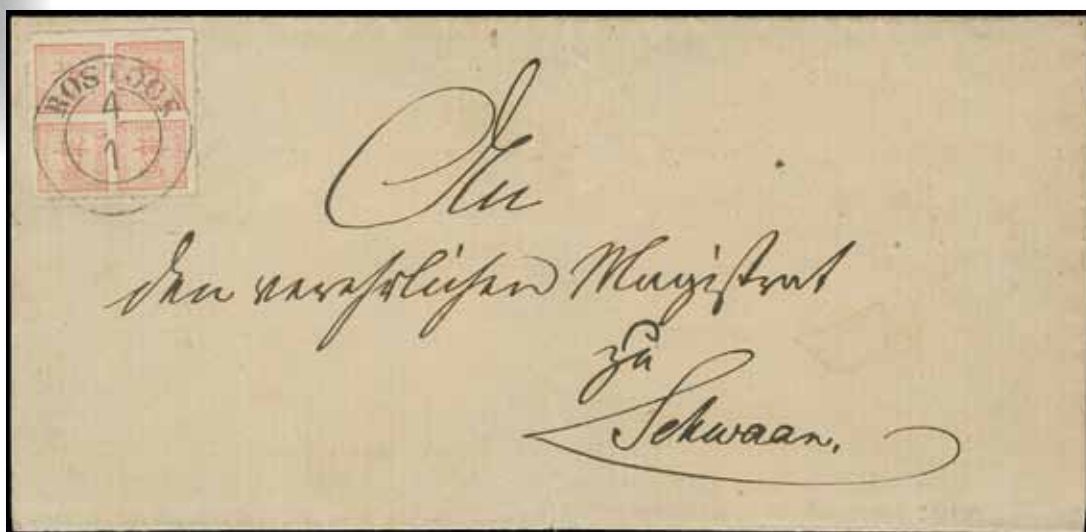 ROSTOCK
4
1
An
den verehrlichen Magistrat
zu
Schwaan.